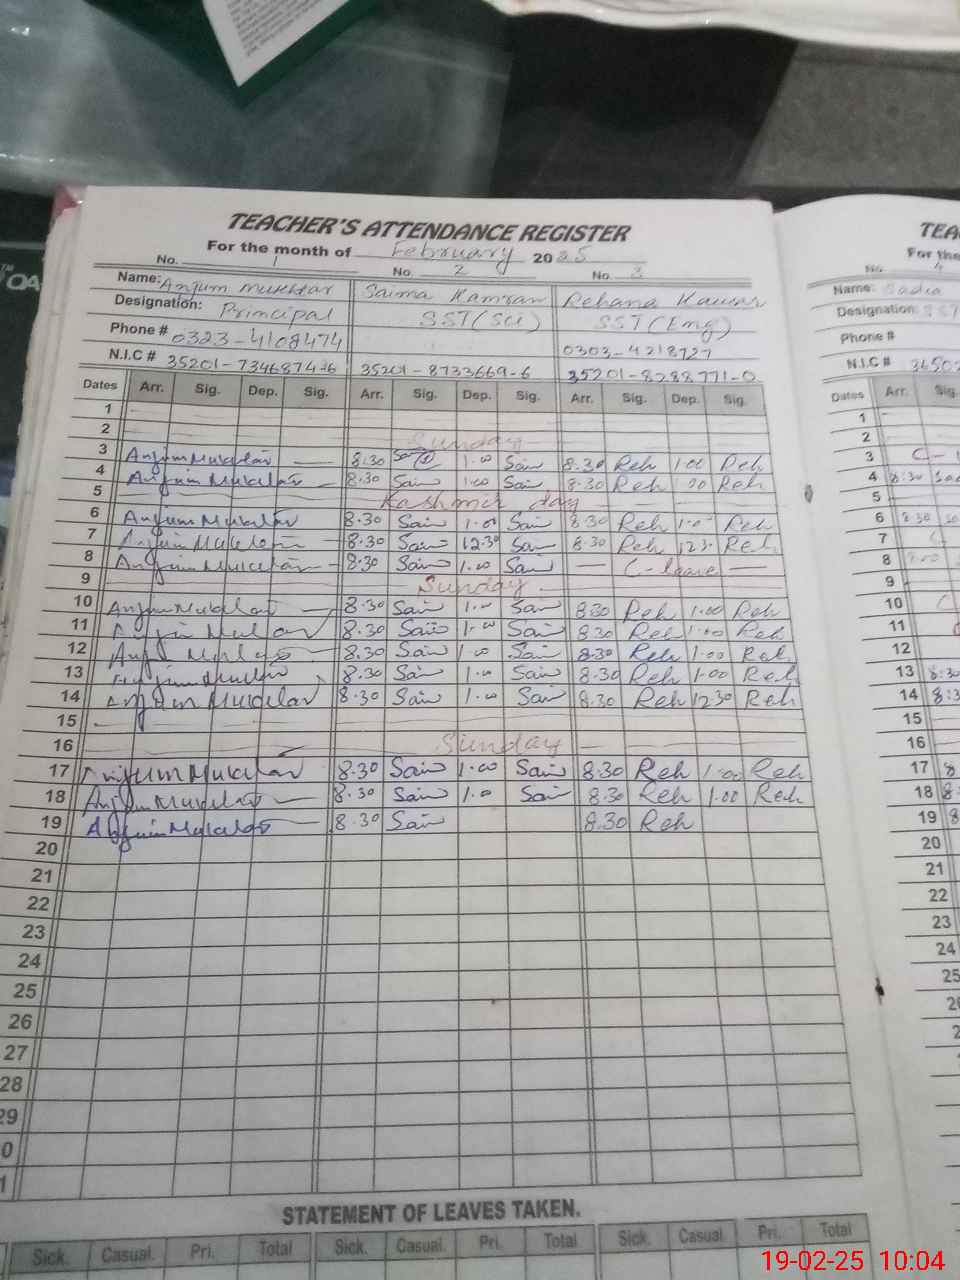 TEACHER'S ATTENDANCE REGISTER
For the month of February 2025
No. 1 No. 2 No. 3
Name: Anjum Mukhtar Saima Kamran Rehana Kausar
Designation: Principal SST (Sci) SST (Eng)
Phone # 0323-4108474 0303-4218727
N.I.C # 35201-8733669-6 35201-8288771-0
Dates Arr. Sig. Dep. Sig. Arr. Sig. Dep. Sig. Arr. Sig. Dep. Sig.
1
2 Sunday
3 Anjum Mukhtar 8.30 Sai 1.00 Sai 8.30 Reh 1.00 Reh
4 Anjum Mukhtar 8.30 Sai 1.00 Sai 8.30 Reh 1.00 Reh
5 Kashmir day
6 Anjum Mukhtar 8.30 Sai 1.00 Sai 8.30 Reh 1.0 Reh
7 Anjum Mukhtar 8.30 Sai 12.30 Sai 8.30 Reh 12.3 Reh
8 Anjum Mukhtar 8.30 Sai 1.00 Sai — C-leave —
9 Sunday
10 Anjum Mukhtar 8.30 Sai 1.00 Sai 8.30 Reh 1.00 Reh
11 Anjum Mukhtar 8.30 Sai 1.00 Sai 8.30 Reh 1.00 Reh
12 Anjum Mukhtar 8.30 Sai 1.00 Sai 8.30 Reh 1.00 Reh
13 Anjum Mukhtar 8.30 Sai 1.00 Sai 8.30 Reh 1.00 Reh
14 Anjum Mukhtar 8.30 Sai 1.00 Sai 8.30 Reh 12.30 Reh
15
16 Sunday
17 Anjum Mukhtar 8.30 Sai 1.00 Sai 8.30 Reh 1.00 Reh
18 Anjum Mukhtar 8.30 Sai 1.0 Sai 8.30 Reh 1.00 Reh
19 Anjum Mukhtar 8.30 Sai 8.30 Reh
20
21
22
23
24
25
26
27
28
29
0
1
STATEMENT OF LEAVES TAKEN.
Sick. Casual. Pri. Total Sick. Casual. Pri. Total Sick. Casual. Pri. Total
TEA
For the
No. 4
Name: Sadia
Designation: SS
Phone #
N.I.C # 3450
Dates Arr. Sig.
1
2
3 C-
4 8:30 Sad
5
6 8.30
7
8
9
10
11
12
13 8:30
14 8:3
15
16
17 8
18 8
19 8
20
21
22
23
24
25
26
27
28
29
19-02-25 10:04